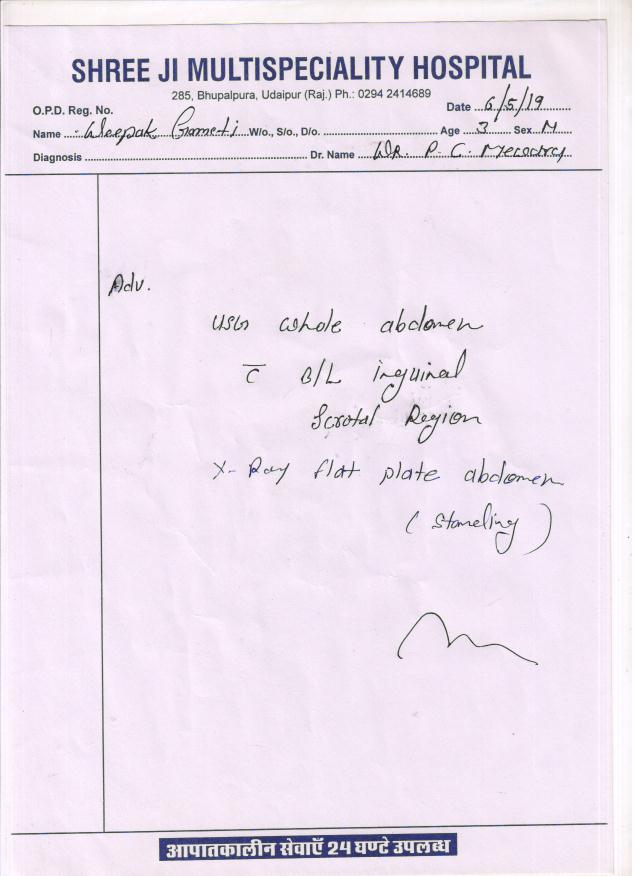 SHREE JI MULTISPECIALITY HOSPITAL
285, Bhupalpura, Udaipur (Raj.) Ph.: 0294 2414689
O.P.D. Reg. No. Date 6/5/19
Name Deepak Gameti W/o., S/o., D/o. Age 3 Sex M
Diagnosis Dr. Name DR. P. C.
Adv.
USG whole abdomen
c̄ B/L inguinal
Scrotal Region
X-Ray flat plate abdomen
(standing)
आपातकालीन सेवाएँ 24 घण्टे उपलब्ध